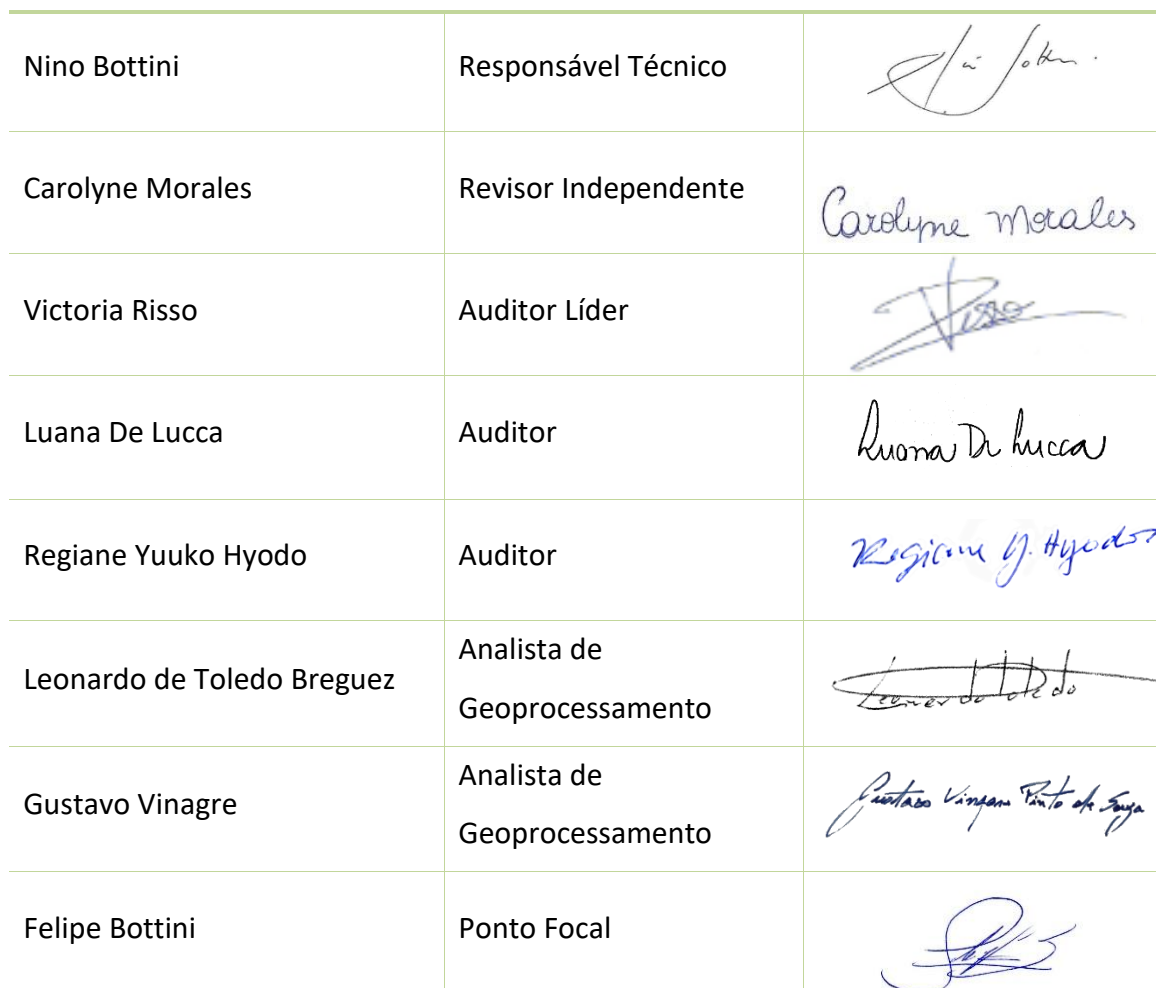 Nino Bottini
Responsável Técnico
Carolyne Morales
Revisor Independente
Carolyne Morales
Victoria Risso
Auditor Líder
Risso
Luana De Lucca
Auditor
Luana De Lucca
Regiane Yuuko Hyodo
Auditor
Regiane Y. Hyodo
Leonardo de Toledo Breguez
Analista de
Geoprocessamento
Leonardo Toledo
Gustavo Vinagre
Analista de
Geoprocessamento
Gustavo Vinagre Pinto de Souza
Felipe Bottini
Ponto Focal